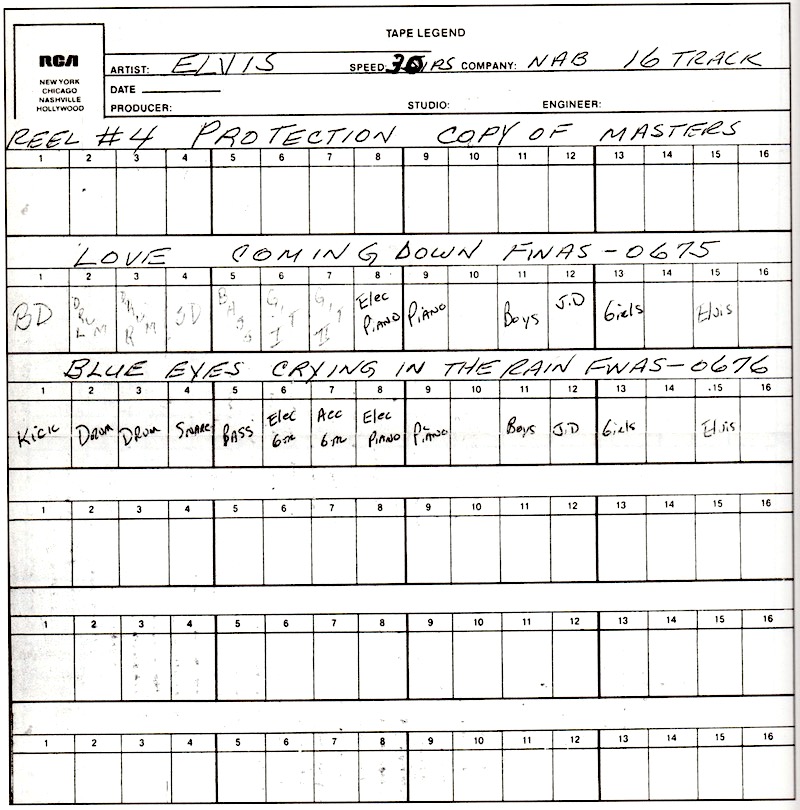 TAPE LEGEND
RCA
NEW YORK
CHICAGO
NASHVILLE
HOLLYWOOD
ARTIST: ELVIS SPEED: 30 IPS COMPANY: NAB 16 TRACK
DATE
PRODUCER: STUDIO: ENGINEER:
REEL #4 PROTECTION COPY OF MASTERS
1 2 3 4 5 6 7 8 9 10 11 12 13 14 15 16
LOVE COMING DOWN FWAS-0675
1 2 3 4 5 6 7 8 9 10 11 12 13 14 15 16
BD DRUM L DRUM R SD BASS GIT I GIT II Elec PIANO PIANO Boys J.D Girls Elvis
BLUE EYES CRYING IN THE RAIN FWAS-0676
1 2 3 4 5 6 7 8 9 10 11 12 13 14 15 16
KICK DRUM DRUM SNARE BASS Elec GTR Acc GTR Elec PIANO PIANO Boys J.D Girls Elvis
1 2 3 4 5 6 7 8 9 10 11 12 13 14 15 16
1 2 3 4 5 6 7 8 9 10 11 12 13 14 15 16
1 2 3 4 5 6 7 8 9 10 11 12 13 14 15 16